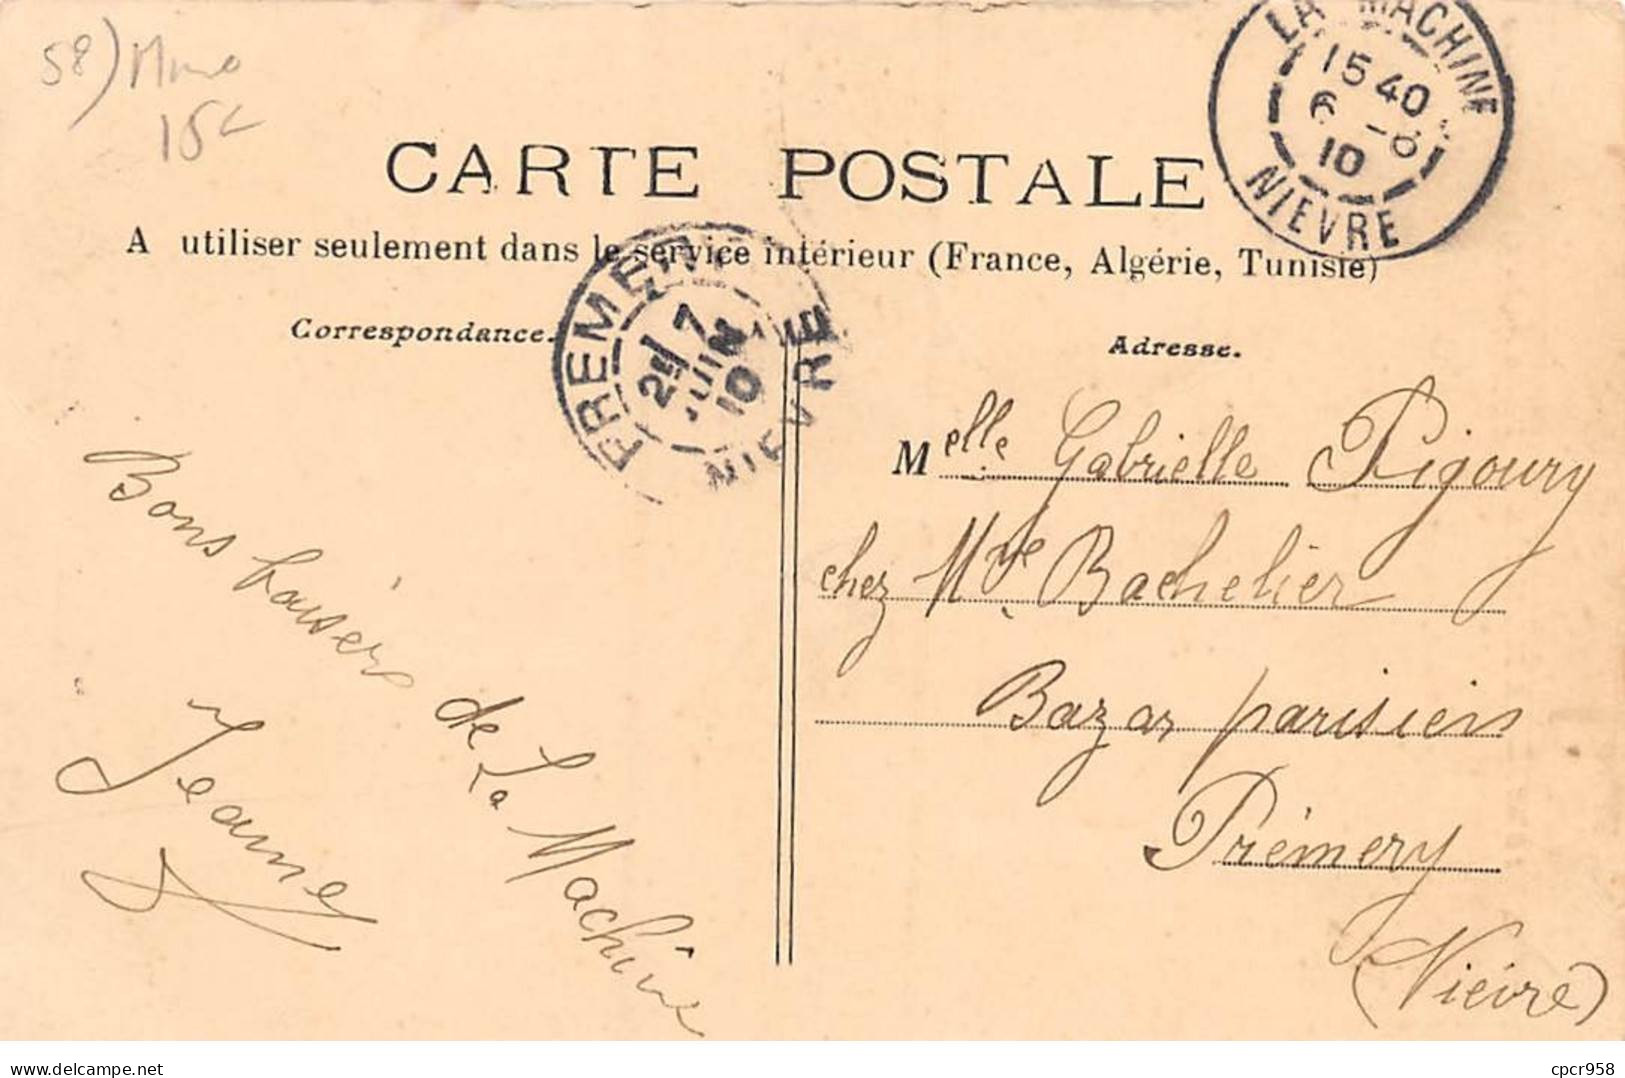 58) Mine
15€
CARTE POSTALE
A utiliser seulement dans le service intérieur (France, Algérie, Tunisie)
LA MACHINE
15 40
6 -6
10
NIEVRE
PREMERY
7
JUIN
10
NIEVRE
Correspondance.
Adresse.
Bons baisers de La Machine
Jeanne
Melle Gabrielle Rigoury
chez Mme Bachelier
Bazar parisien
Prémery
(Nièvre)
delcampe.net
cpcr958